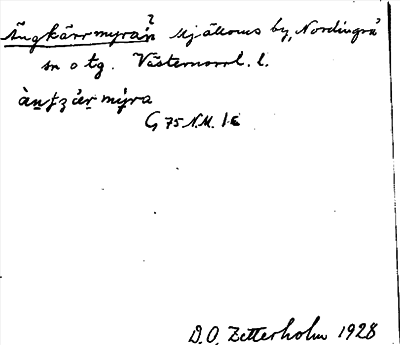 Ängkärrmyran? Mjälloms by, Nordingrå
sn o tg. Västernorrl. l.
àṉʄʒ ǽṟ mýra
G 75 N.M. 1:6
D. O. Zetterholm 1928